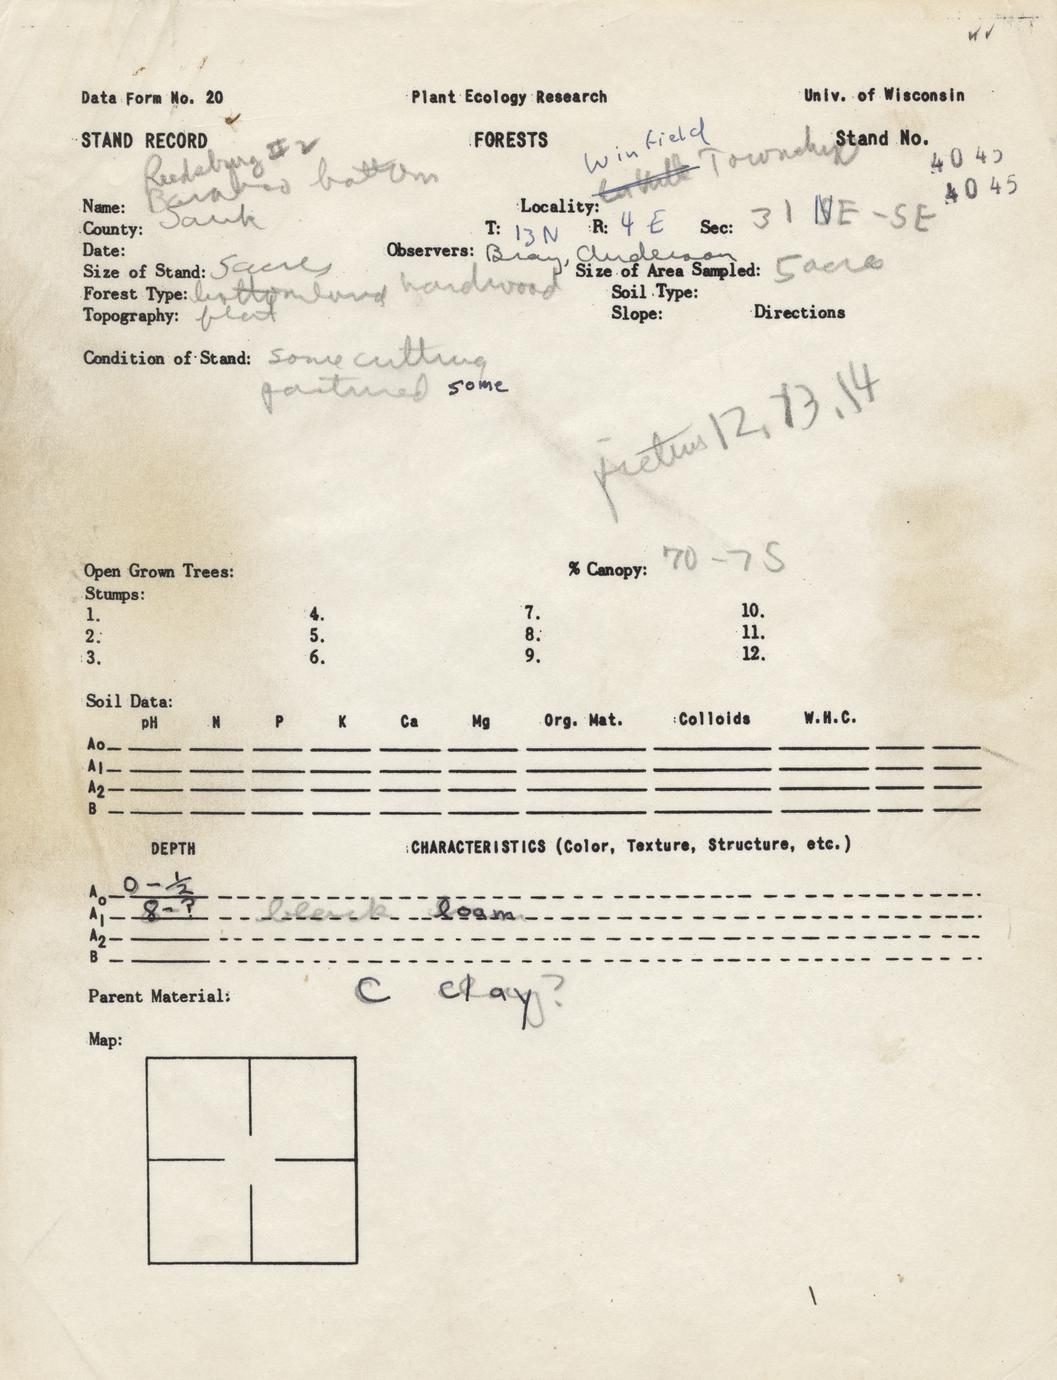 Data Form No. 20 Plant Ecology Research Univ. of Wisconsin
STAND RECORD FORESTS Stand No.
Reedsburg #2 Winfield Township 4045
Name: Baraboo bottom Locality: 4045
County: Sauk T: 13N R: 4E Sec: 31 NE-SE
Date: Observers: Bray, Anderson
Size of Stand: 5 acres Size of Area Sampled: 5 acres
Forest Type: bottomland hardwood Soil Type:
Topography: flat Slope: Directions
Condition of Stand: some cutting
pastured some
12, 13, 14
Open Grown Trees: % Canopy: 70-75
Stumps:
1. 4. 7. 10.
2. 5. 8. 11.
3. 6. 9. 12.
Soil Data:
pH N P K Ca Mg Org. Mat. Colloids W.H.C.
Ao
A1
A2
B
DEPTH CHARACTERISTICS (Color, Texture, Structure, etc.)
Ao 0-½
A1 8-? black loam
A2
B
Parent Material: C clay?
Map: